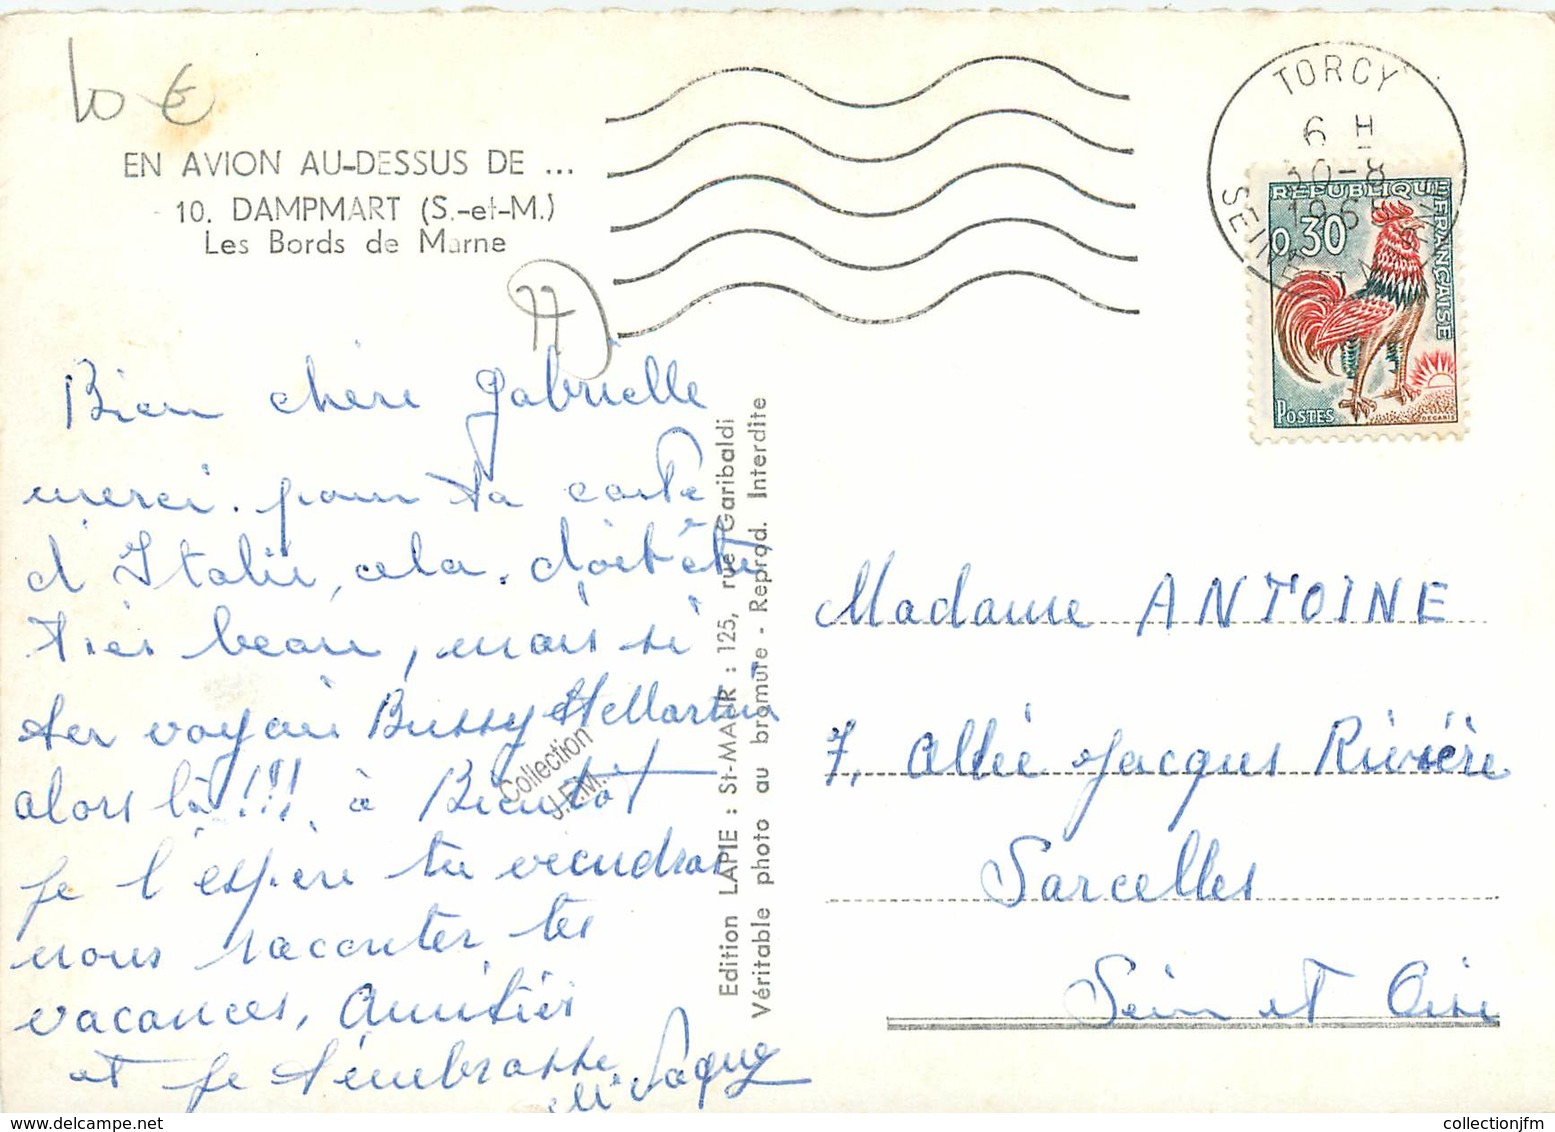 10 €
EN AVION AU-DESSUS DE ...
10. DAMPMART (S.-et-M.)
Les Bords de Marne
TORCY
6 H
10-8
SEINE ET MARNE
REPUBLIQUE FRANÇAISE
0,30
POSTES
77
Bien chère Gabrielle
merci. pour ta carte
d'Italie, cela. doit être
très beau, mais si
ter voyais Bussy St Martin
alors là!!! à Bientôt
je l'espère tu viendras
nous raconter tes
vacances, Amitiés
et je t'embrasse
Edition LAPIE : St-MAUR : 125, rue Garibaldi
Véritable photo au bromure - Reprod. Interdite
Collection
J.F.M.
Madame ANTOINE
7, Allée Jacques Rivière
Sarcelles
Seine et Oise
collectionjfm
https://www.delcampe.net